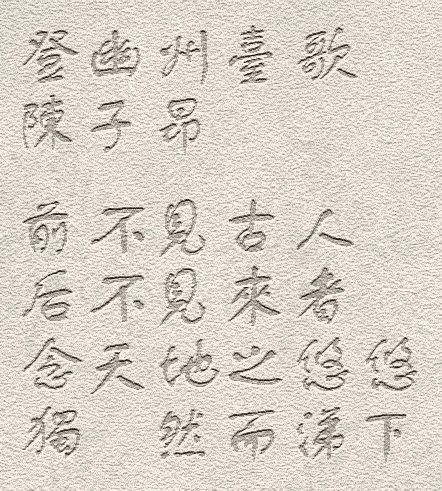 登幽州臺歌
陳子昂
前不見古人
后不見來者
念天地之悠悠
獨 然而涕下